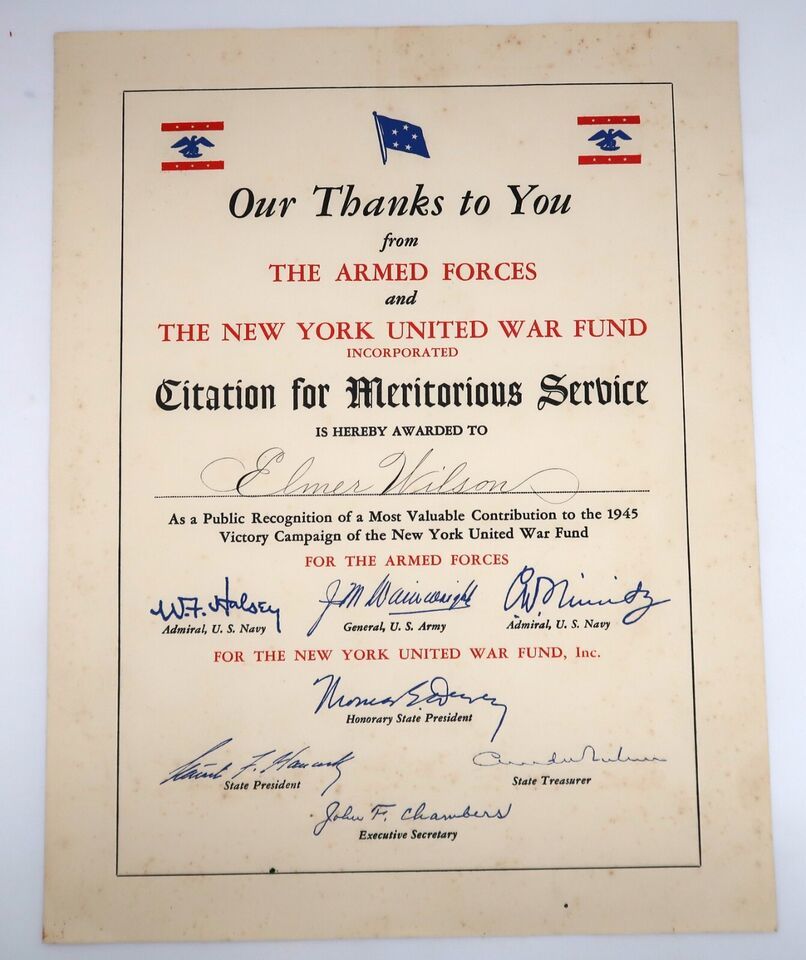 Our Thanks to You
from
THE ARMED FORCES
and
THE NEW YORK UNITED WAR FUND
INCORPORATED
Citation for Meritorious Service
IS HEREBY AWARDED TO
Elmer Wilson
As a Public Recognition of a Most Valuable Contribution to the 1945
Victory Campaign of the New York United War Fund
FOR THE ARMED FORCES
W.F. Halsey JM Wainwright CW Nimitz
Admiral, U. S. Navy General, U. S. Army Admiral, U. S. Navy
FOR THE NEW YORK UNITED WAR FUND, Inc.
Thomas E. Dewey
Honorary State President
F. Hancock
State President State Treasurer
John F. Chambers
Executive Secretary